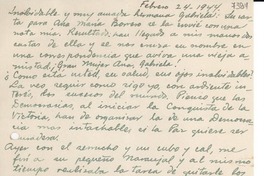 Febrero 24-1944.
Inolvidable y muy amada hermana Gabriela: Su car-
ta para Ana María Borrero se la envié con una
nota mía. Resultado: han llegado a mis manos dos
cartas de ella y se nos inicia su nombre en
una correspondencia que aviva una vieja a-
mistad. Gran Mujer Ana, Gabriela!
¿Como está usted, su salud, sus ojos inolvidables?
La veo, seguir como sigo yo, con ardiente in-
terés, los sucesos del mundo. Pienso que
las Democracias, al iniciar la Conquista de la
Victoria, han de organizar la de una Democra-
cia más intachable: es la Paz que quiere ser
mundial.
Ayer con el serrucho y un cubo y cal, me
fui a su pequeño Naranjal y al mismo
tiempo realizaba la tarea de quitarle los